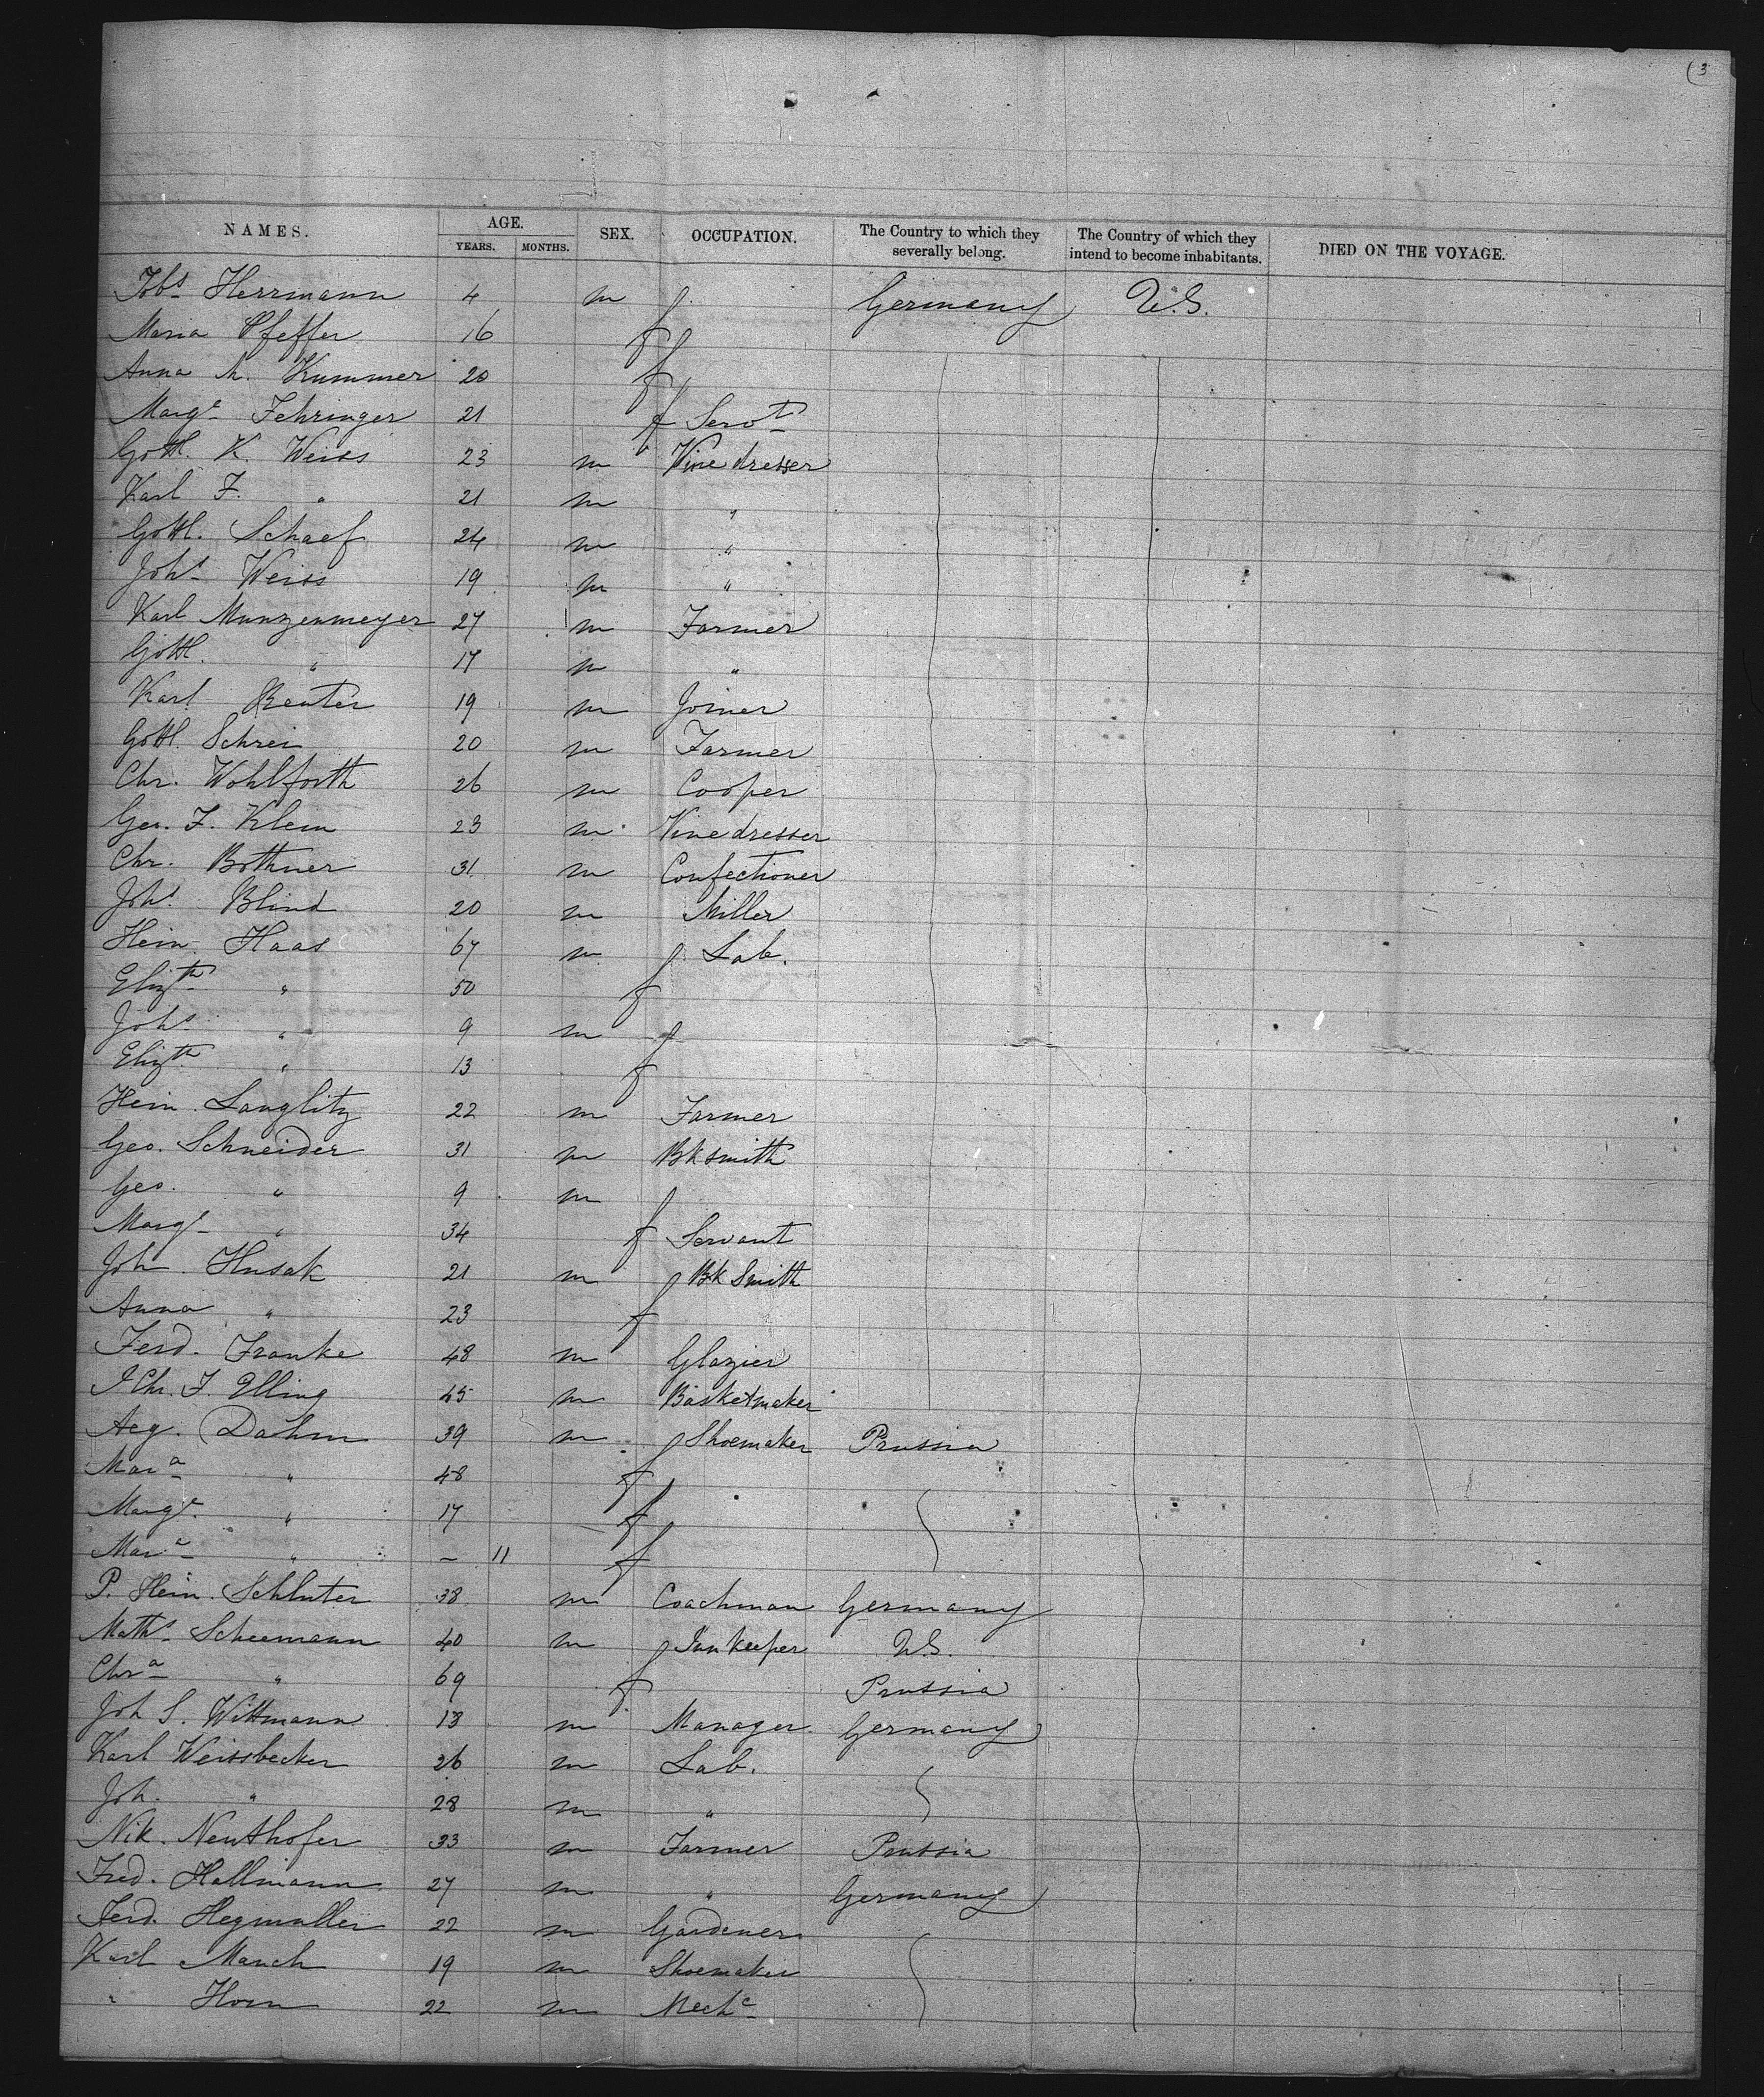 (3
NAMES. AGE. YEARS. MONTHS. SEX. OCCUPATION. The Country to which they severally belong. The Country of which they intend to become inhabitants. DIED ON THE VOYAGE.
Herrmann 4 m Germany U.S.
Maria Pfeffer 16 f
Anna M. Kummer 20 f "
Margt Fehringer 21 f Servt
Gottl. K. Weiss 23 m Vinedresser
Karl F. " 21 m "
Gottl. Schaef 24 m "
Johs Weiss 19 m "
Karl Munzenmeyer 27 m Farmer
Gottl. " 17 m "
Karl Reuter 19 m Joiner
Gottl. Schrei 20 m Farmer
Chr. Wohlforth 26 m Cooper
Geo. F. Klein 23 m Vinedresser
Chr. Bothner 31 m Confectioner
Johs Blind 20 m Miller
Hein Haas 67 m Lab.
Elizth " 50 f
Johs " 9 m
Elizth " 13 f
Hein. Langlitz 22 m Farmer
Geo. Schneider 31 m Bksmith
Geo. " 9 m
Margt " 34 f Servant
Joh. Husak 21 m Bk Smith
Anna " 23 f
Ferd. Franke 48 m Glazier
J Chr. F. Elling 45 m Basketmaker
Aeg. Dahm 39 m Shoemaker Prussia
Mara " 48 f
Margt. " 17 f
Mara " ~ 11 f
P. Hein. Schluter 38 m Coachman Germany
Maths Scheemann 40 m Innkeeper U.S.
Chra " 69 f Prussia
Joh S. Wittmann 18 m Manager Germany
Karl Weissbecker 26 m Lab.
Joh. " 28 m "
Nik. Neuthofer 33 m Farmer Prussia
Fred. Hallmann 27 m " Germany
Ferd. Hegmuller 22 m Gardener
Karl Manch 19 m Shoemaker
" Horn 22 m Mechc